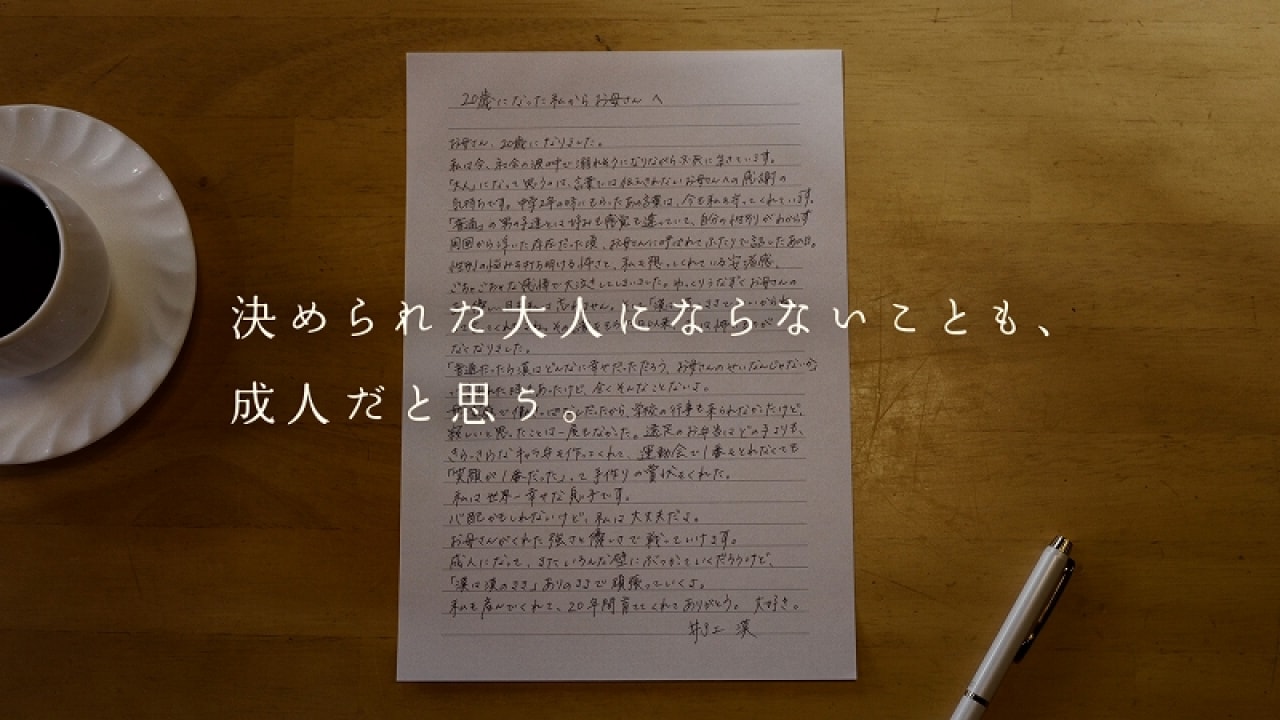 20歳になった私からお母さんへ
お母さん、20歳になりました。
私は今、社会の波の中で溺れそうになりながら必死に生きています。
「大人」になって思うのは、言葉では伝えきれないお母さんへの感謝の
気持ちです。中学2年の時にもらったあの言葉は、今も私を守ってくれています。
「普通」の男の子達とは好みも感覚も違っていて、自分の性別がわからず
周囲から浮いた存在だった頃、お母さんに呼ばれてふたりで話したあの日。
性別の悩みを打ち明ける怖さと、私を想ってくれている安堵感、
ごちゃごちゃな感情で大泣きしてしまいました。ゆっくりうなずくお母さんの
決められた大人にならないことも、
なくなりました。
「普通だったら漢はどんなに幸せだっただろう、お母さんのせいなんじゃないか」
成人だと思う。
だったから、学校の行事も来られなかったけど、
寂しいと思ったことは一度もなかった。遠足のお弁当はどの子よりも、
きらっきらなキャラ弁を作ってくれて、運動会で1番をとれなくても
「笑顔が1番だった」って手作りの賞状をくれた。
私は世界一幸せな息子です。
心配かもしれないけど、私は大丈夫だよ。
お母さんがくれた強さと優しさで戦っていけます。
成人になって、またいろんな壁にぶつかっていくだろうけど、
「漢は漢のまま」ありのままで頑張っていくよ。
私を産んでくれて、20年間育ててくれてありがとう。大好き。
井上 漢